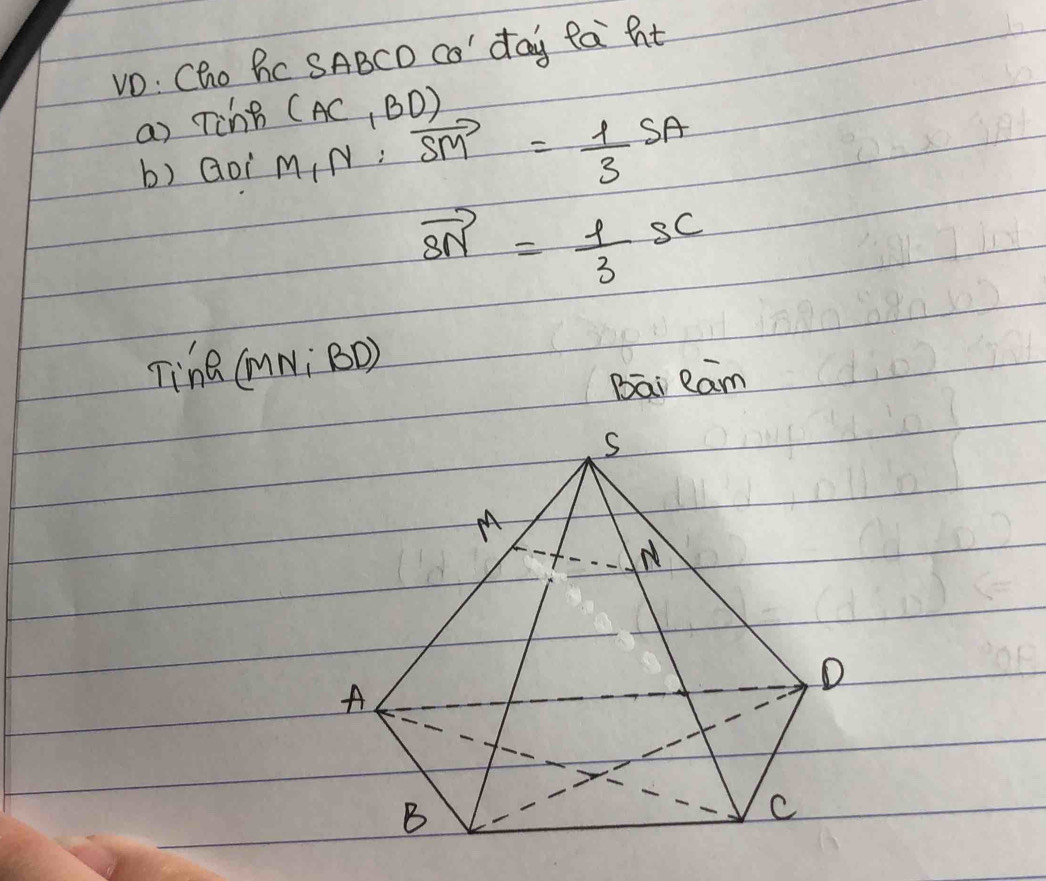 VD: Cho hc SABCD có đáy là ht
a) Tính (AC, BD)
b) Gọi M, N : \overrightarrow{SM} = \frac{1}{3} SA
\overrightarrow{SN} = \frac{1}{3} SC
Tính (MN; BD)
Bài làm
S
M
N
A
D
B
C